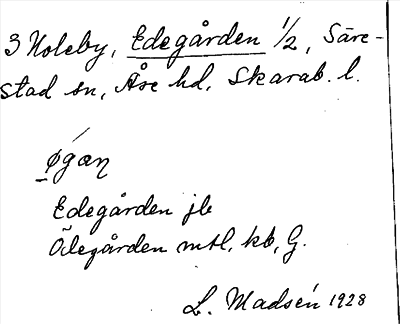 3 Holeby, Edegården 1/2, Säre-
stad sn, Åse hd, Skarab. l.
Edegården jb
Ödegården mtl, kb, G.
L. Madsén 1928